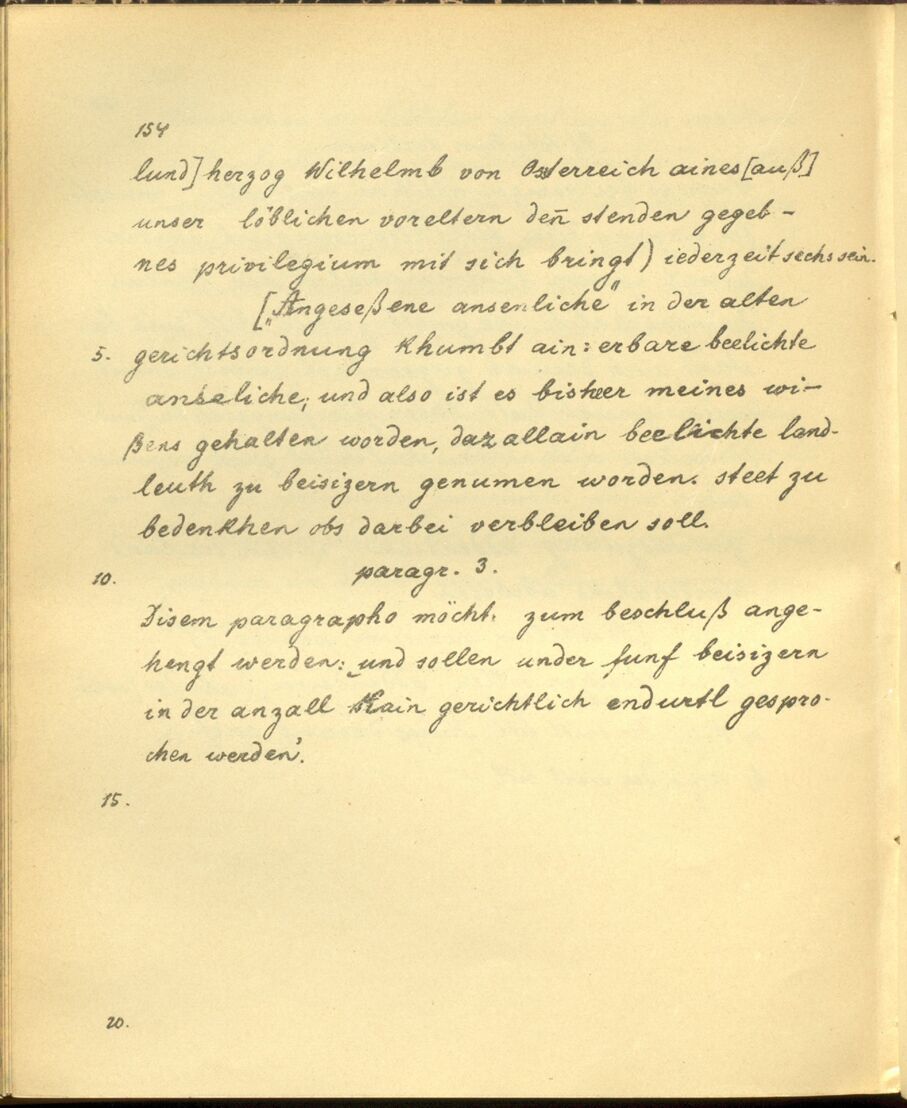 154
lund] herzog Wilhelmb von Osterreich aines [auß]
unser löblichen voreltern den̄ stenden gegeb-
nes privilegium mit sich bringt) iederzeit sechs sein.
[„Angeseßene ansenliche" in der alten
5. gerichtsordnung khumbt ain: erbare beelichte
anseliche; und also ist es bisheer meines wi-
ßens gehalten worden, daz allain beelichte land-
leuth zu beisizern genumen worden. steet zu
bedenkhen obs darbei verbleiben soll.
10. paragr. 3.
Disem paragrapho möcht zum beschluß ange-
hengt werden: „und sollen under funf beisizern
in der anzall kain gerichtlich endurtl gespro-
chen werden'.
15.
20.